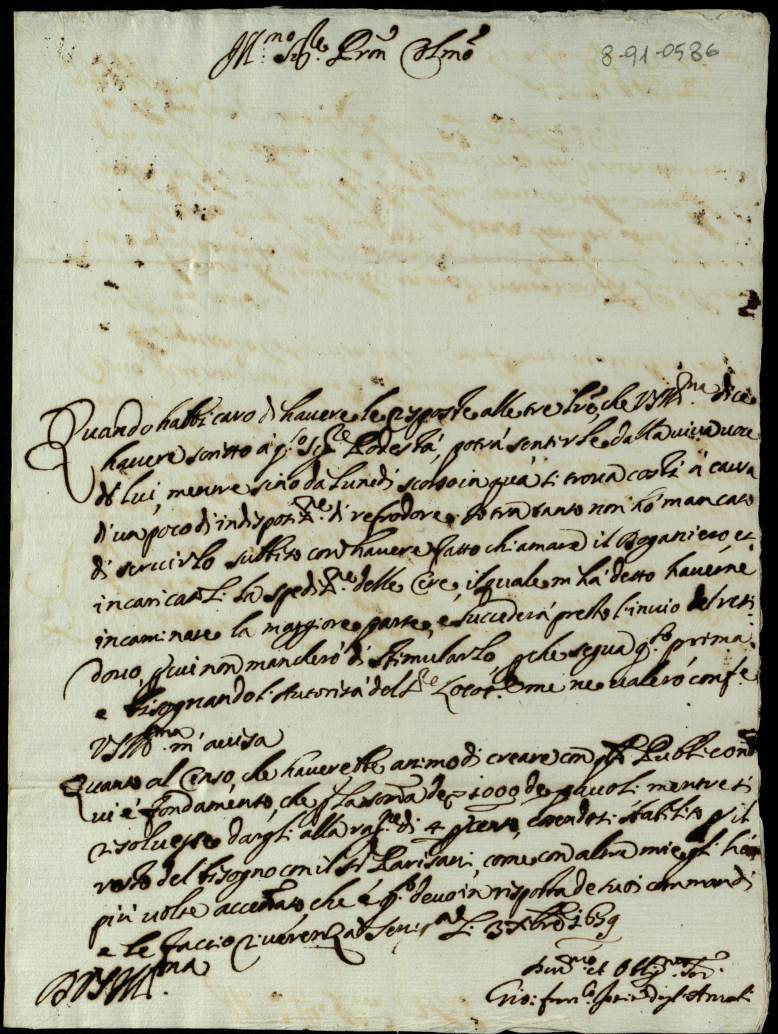 Ill.mo Sig.re Pron Col.mo
8-91-0586
Quando habbi caro di havere le risposte alle tre l.re, che V.S. Ill.ma dice
havere scritto à q.to Sig.re Podestà, potrà sentirle dalla viva voce
di lui, mentre sino da Lunedi scorso in quà si trova costì à causa
di un poco di indispoz.ne di refredore. Intratanto non hò mancato
di servirlo subbito con havere fatto chiamare il Doganiero, et
incaricatoli la spediz.ne delle Cere, il quale m'hà detto haverne
incaminate la maggiore parte, e succederà presto l'invio del resi-
duo, p cui non mancherò di stimularlo, pche segua q.to prima
e bisognandoli Autorità del S.re Locot. me ne valerò conf.e
V.S. Ill.ma m'avisa
Quanto al Censo, che haverebbe animo di creare con
vi è fondamento, che p la soma de 1000 de pavoli mentre si
risolvesse dargli alla rag.ne di 4 p cento, essendosi stabilito p il
resto del bisogno con il S.r Parisani, come con altra mia gli hò
più volte accennato che è q.to devo in risposta de suoi commandi
e le faccio riverenza Seni 3 Xbre 1659
D V.S. Ill.ma
Dev.mo et Obblig.mo Ser.
Gio: Fran.co degli Azzoli